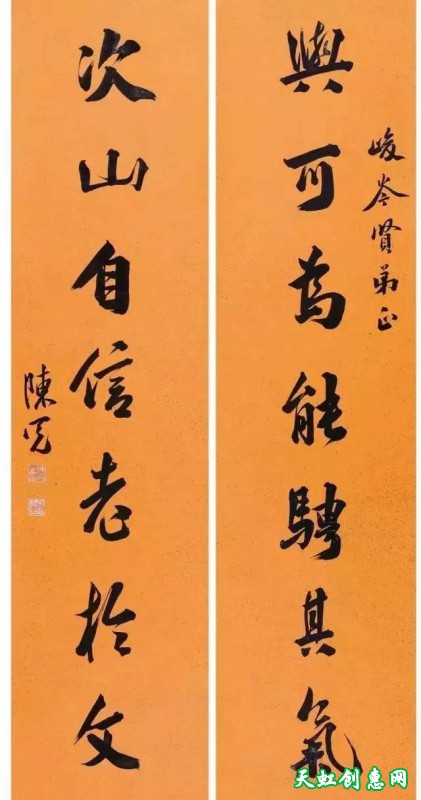 峻
賢弟正
與可為能騁其氣
次山自信老於文
陳
天虹创惠网